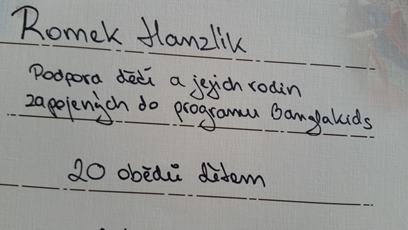 Romek Hanzlík
Podpora dětí a jejich rodin
zapojených do programu Banglakids
20 obědů dětem